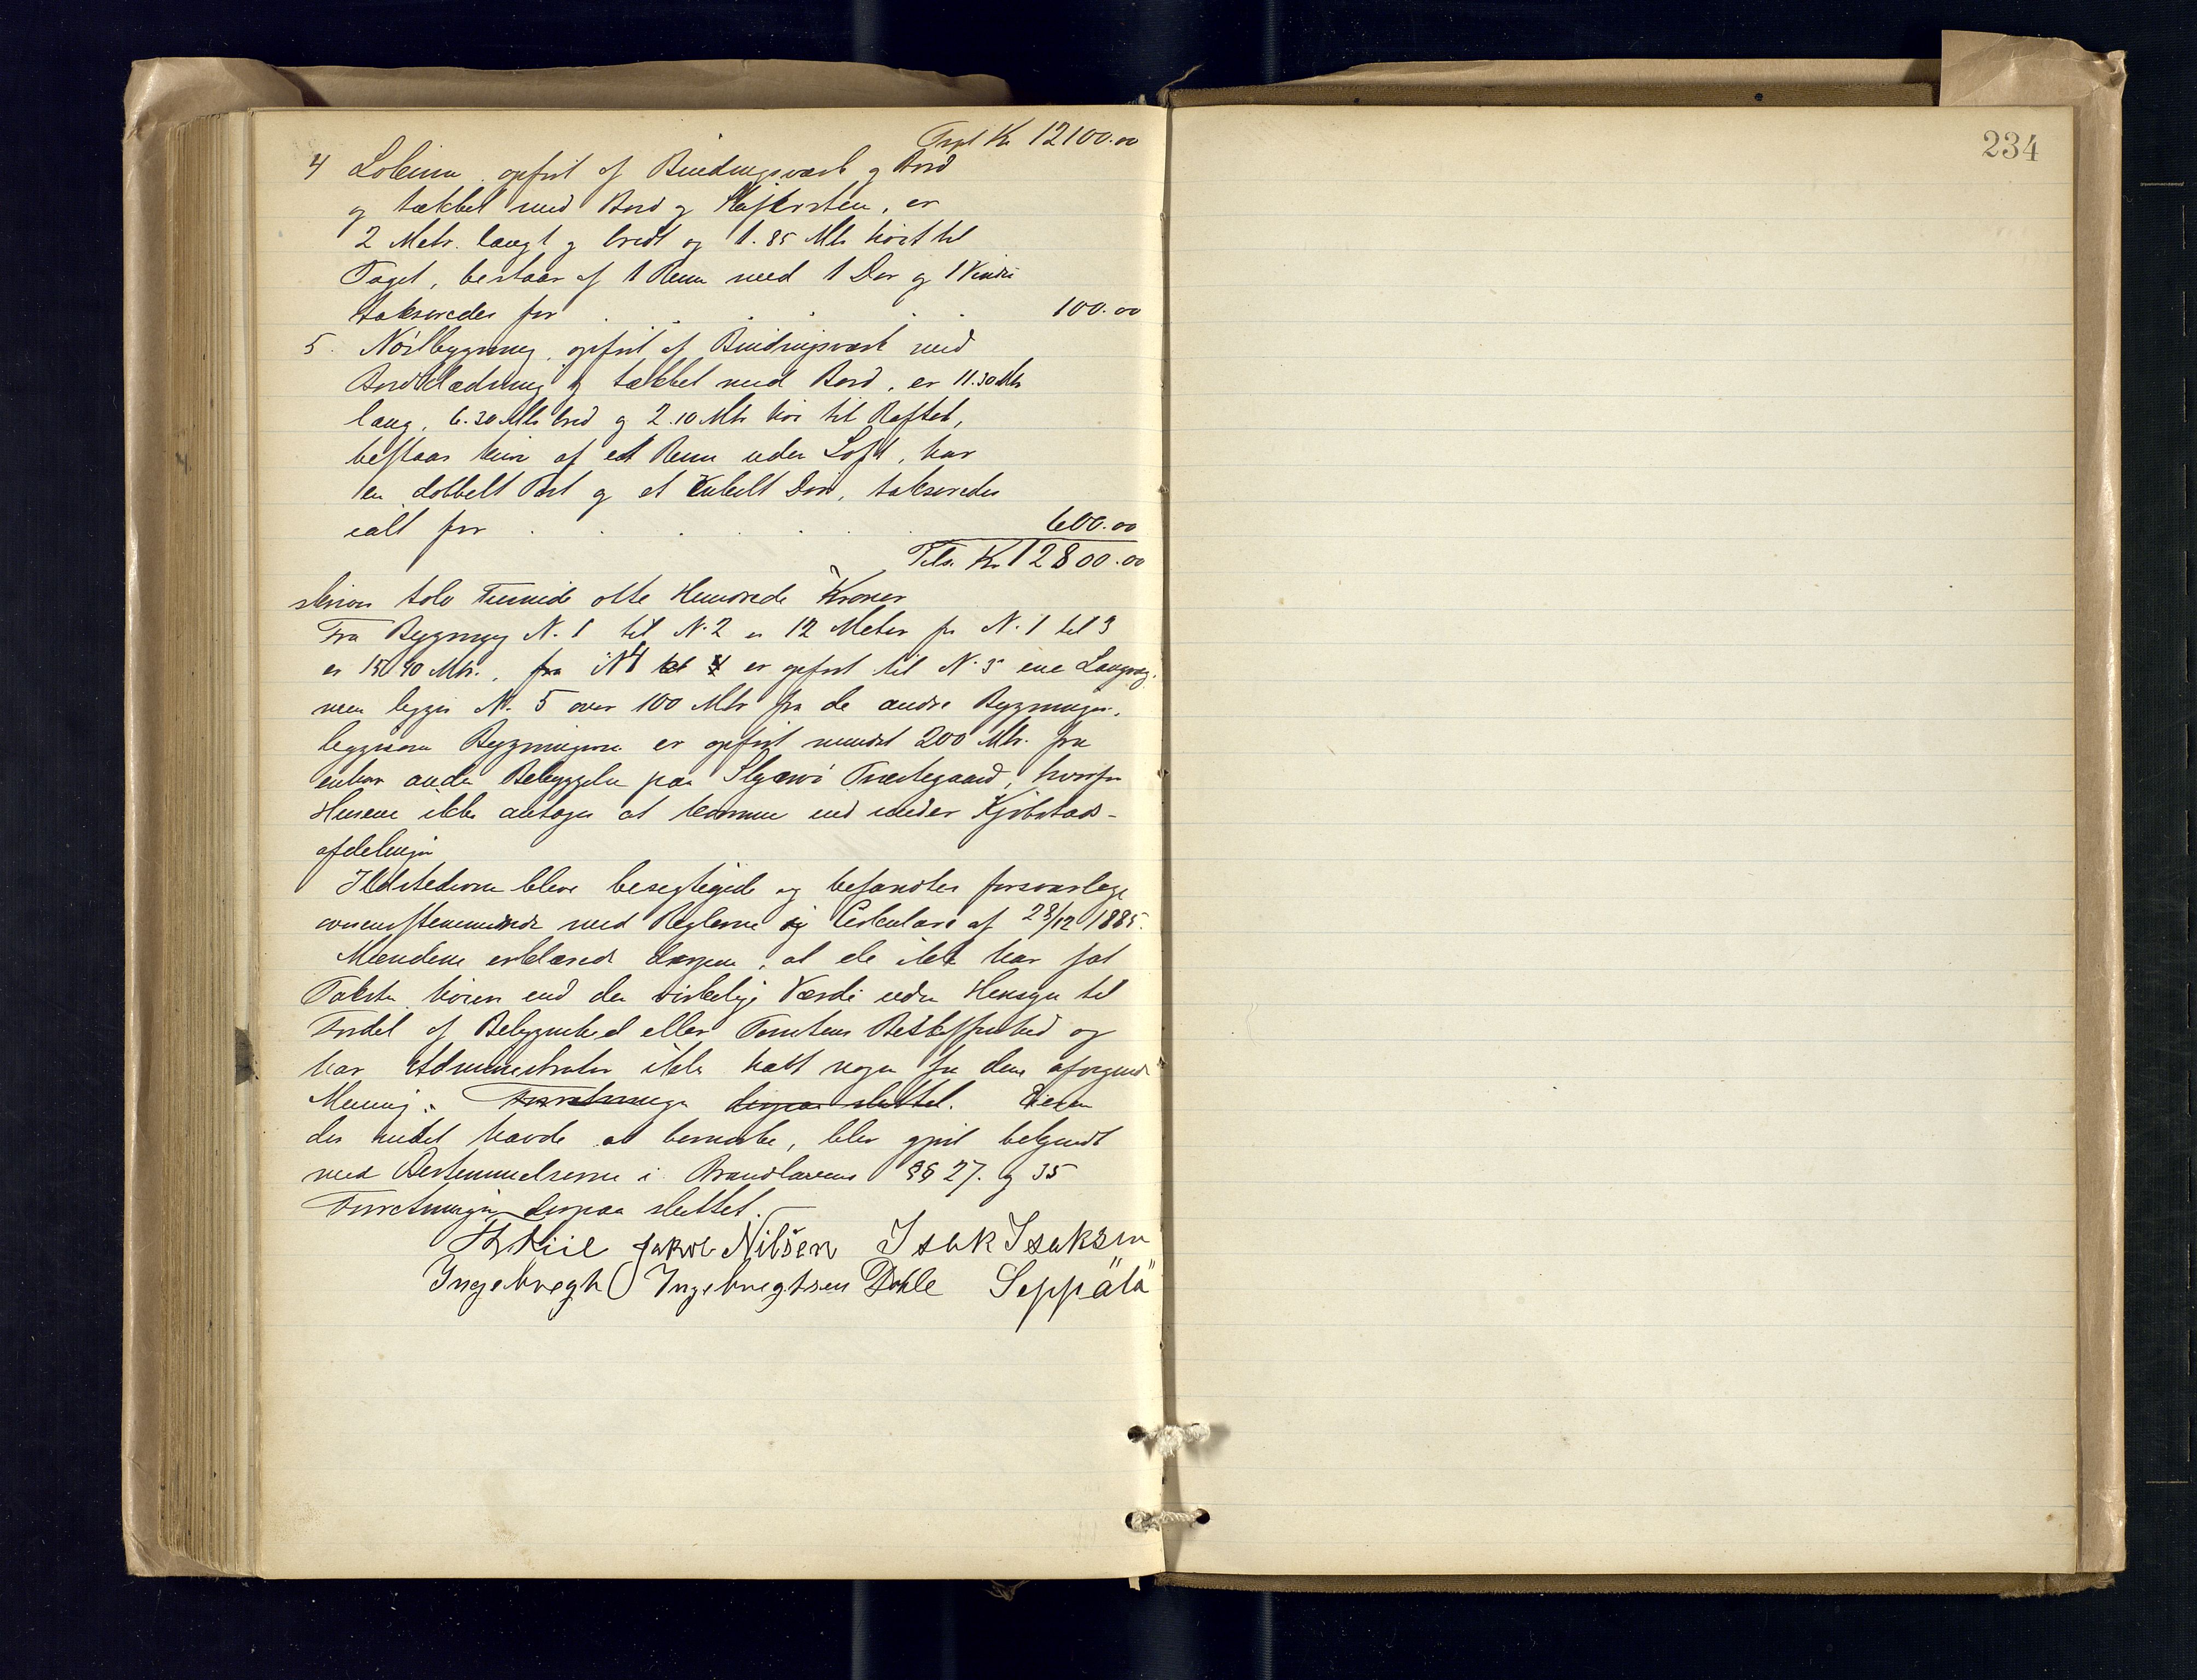 Trspt Kr 12100.00
4 opført af Bindingsværk og Bord
og tækket med Bord og er
2 Metr. langt og bredt og 1.85 Mtr høit til
Taget, bestaar af 1 Rum med 1 Dør og 1 Vindu
takseredes for . . . . . . 100.00
5. bygning, opført af Bindingsværk med
Bordklædning og tækket med Bord, er 11.30 Mtr
lang, 6.30 Mtr bred og 2.10 Mtr høi til Raftet,
bestaar kun af et Rum uden Loft, har
en dobbelt Port og et enkelt Dør, takseredes
ialt for . . . . . . 600.00
Tils. Kr 12800.00
skriver tolv Tusinde otte Hundrede Kroner
Fra Bygning N. 1 til N. 2 er 12 Meter fra N. 1 til 3
er 15.40 Mtr., fra N 4 er opført til N. 3 ene Langvæg.
men ligger N. 5 over 100 Mtr fra de andre Bygninger.
Bygningerne er opført mindst 200 Mtr. fra
enhver anden Bebyggelse paa Præstegaard, hvorfor
Husene ikke antages at komme ind under Kjøbstads-
afdelingen
Ildstederne blev besigtigede og befandtes forsvarlige
overensstemmende med Reglerne og Cirkulære af 28/12 1885.
Mændene erklærede derpaa, at de ikke har sat
Taksten høiere end den virkelige Værdi uden Hensyn til
Fordel af Beliggenhed eller Tomtens Beskaffenhed og
har Administrator ikke havt nogen fra dem afvigende
Mening. Forretningen derpaa sluttet. Eieren
der intet havde at bemærke, blev gjort bekjendt
med Bestemmelserne i Brandlovens §§ 27. og 35
Forretningen derpaa sluttet.
Kiil Jakob Nilsen Isak Isaksen
Ingebregt Ingebregtsen Dahle Seppälä
234